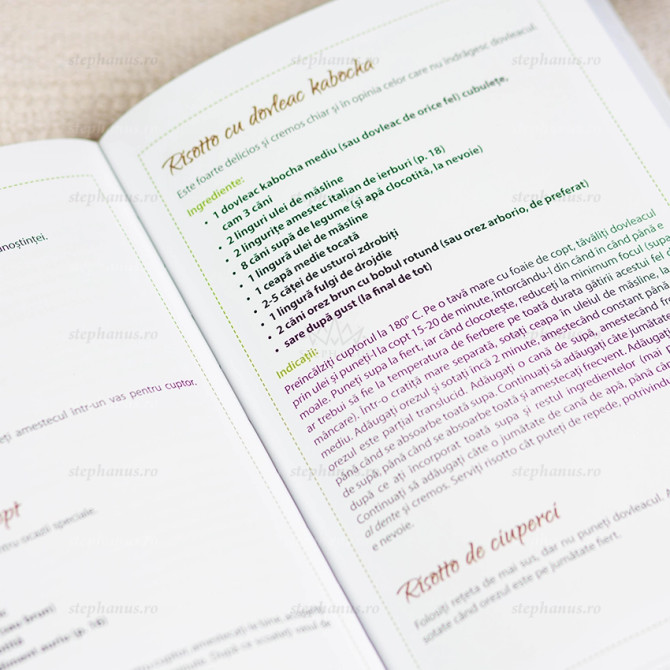 noștinței.
eți amestecul într-un vas pentru cuptor,
pt
ntru ocazii speciale.
(p. 18)
Risotto cu dovleac kabocha
Este foarte delicios și cremos chiar și în opinia celor care nu îndrăgesc dovleacul.
Ingrediente:
• 1 dovleac kabocha mediu (sau dovleac de orice fel) cubulețe,
cam 3 căni
• 2 linguri ulei de măsline
• 2 lingurițe amestec italian de ierburi (p. 18)
• 8 căni supă de legume (și apă clocotită, la nevoie)
• 1 lingură ulei de măsline
• 1 ceapă medie tocată
• 2-5 căței de usturoi zdrobiți
• 1 lingură fulgi de drojdie
• 2 căni orez brun cu bobul rotund (sau orez arborio, de preferat)
• sare după gust (la final de tot)
Indicații:
Preîncălziți cuptorul la 180° C. Pe o tavă mare cu foaie de copt, tăvăliți dovleacul
prin ulei și puneți-l la copt 15-20 de minute, întorcându-l din când în când până e
moale. Puneți supa la fiert, iar când clocotește, reduceți la minimum focul (supa
ar trebui să fie la temperatura de fierbere pe toată durata gătirii acestui fel de
mâncare). Într-o cratiță mare separată, sotați ceapa în uleiul de măsline, la
mediu. Adăugați orezul și sotați încă 2 minute, amestecând constant până
orezul este parțial translucid. Adăugați o cană de supă, amestecând
până când se absoarbe toată supa. Continuați să adăugați câte jumătate
de supă, până când se absoarbe toată și amestecați frecvent. Adăugați
după ce ați încorporat toată supa și restul ingredientelor (mai
Continuați să adăugați câte o jumătate de cană de apă, până
al dente și cremos. Serviți risotto cât puteți de repede, potrivind
e nevoie.
Risotto de ciuperci
Folosiți rețeta de mai sus, dar nu puneți dovleacul.
sotate când orezul este pe jumătate fiert.
stephanus.ro